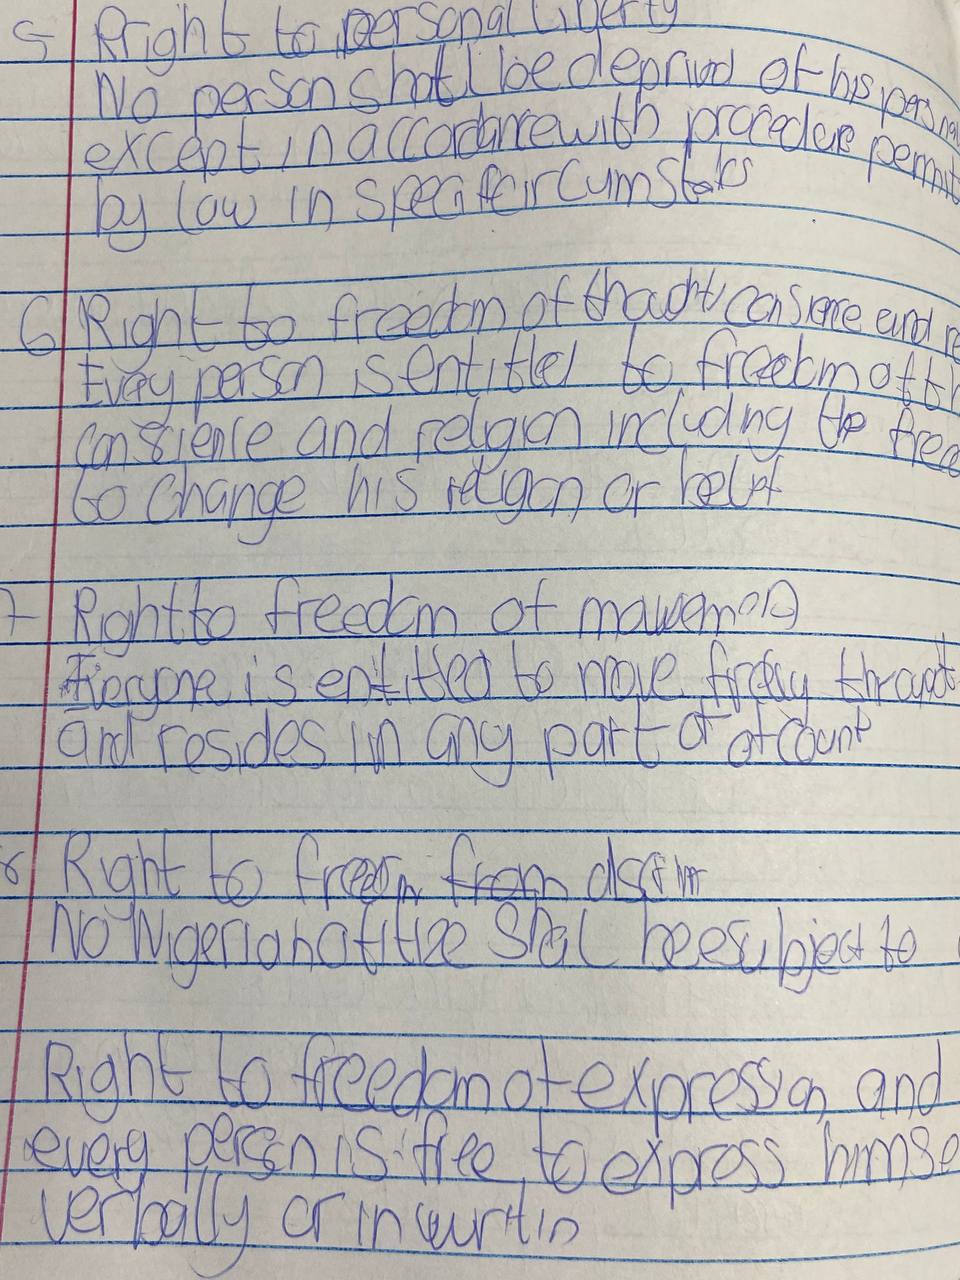 5 Right to personal liberty
No person shall be deprived of his persnal
except in accordance with procedure permit
by law in specific circumstats
6 Right to freedom of thought, consience and re
Every person is entitled to freedom of th
consience and religion including the free
to change his religon or belif
7 Right to freedom of
Everyone is entitled to move freely through
and resides in any part of of count
8 Right to freedom from discrim
No Nigerian citize Shal be subject to
Right to freedom of expression and
every person is free to express himse
verbally or in writin